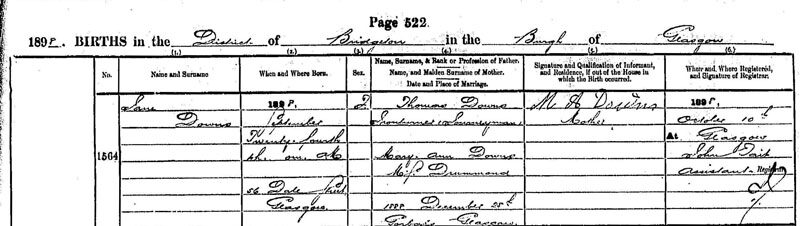 Page 522.
189 . BIRTHS in the District of Bridgeton in the Burgh of Glasgow
(1.) (2.) (3.) (4.) (5.) (6.)
No.
Name and Surname
When and Where Born.
Sex.
Name, Surname, & Rank or Profession of Father.
Name, and Maiden Surname of Mother.
Date and Place of Marriage.
Signature and Qualification of Informant,
and Residence, if out of the House in
which the Birth occurred.
When and Where Registered,
and Signature of Registrar.
1564
Jane
Downs
189 .
September
Twenty fourth
h. m. M
56 Dale Street
Glasgow.
F
Thomas Downs
(Journeyman)
Mary Ann Downs
M.S. Drummond
1888 December 28th
Gorbals Glasgow
M A Downs
Mother
189 .
October 10th
At Glasgow
John Tait
Assistant Registrar